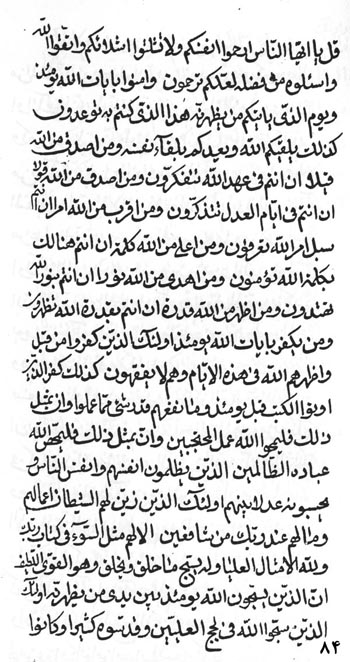 قل يا ايها الناس ارحموا انفسكم ولا تتلوا امثالكم واتقوا الله
واسئلوه من فضله لعلكم ترحمون وامنوا بايات الله يومئذ
ويوم الذي ياتيكم من يظهره هذا الذي كنتم به توعدون
كذلك يلقيكم الله ويعيدكم بلقاء نفسه ومن اصدق من الله
قيلا ان انتم في عهد الله تتفكرون ومن اصدق من الله قولا
ان انتم في ايام العدل تتذكرون ومن اقرب من الله امرا ان انتم
سبل امر الله تعرفون ومن اعلى من الله كلمة ان انتم هنالك
بكلمة الله تؤمنون ومن اهدى من الله نورا ان انتم بنور الله
تهتدون ومن اظهر من الله قدرة ان انتم بقدرة الله تظهرون
ومن يكفر بايات الله يومئذ اولئك الذين كفروا من قبل
واظهرهم الله في هذه الايام وهم لا يفقهون كذلك كفر الذين
اوتوا الكتب قبل يومئذ وما نفعهم قدر شئ مما عملوا وان بمثل
ذلك فليمحوا الله عمل المحتجبين وان بمثل ذلك فليقهر الله
عباده الظالمين الذين يظلمون انفسهم وانفس الناس
يحسبونه عدلا بينهم اولئك الذين زين لهم الشيطان اعمالهم
وما لهم عند ربك من شافعين الا لهم مثل السوء في كتاب ربك
ولله الامثال العليا وله يسبح ما خلق ويخلق وهو القوي اللطيف
ان الذين يسبحون الله يومئذ بين يدي من يظهره اولئك
الذين سبحوا الله في لجج العليين وقدسوه كثيرا وكانوا
٨٤